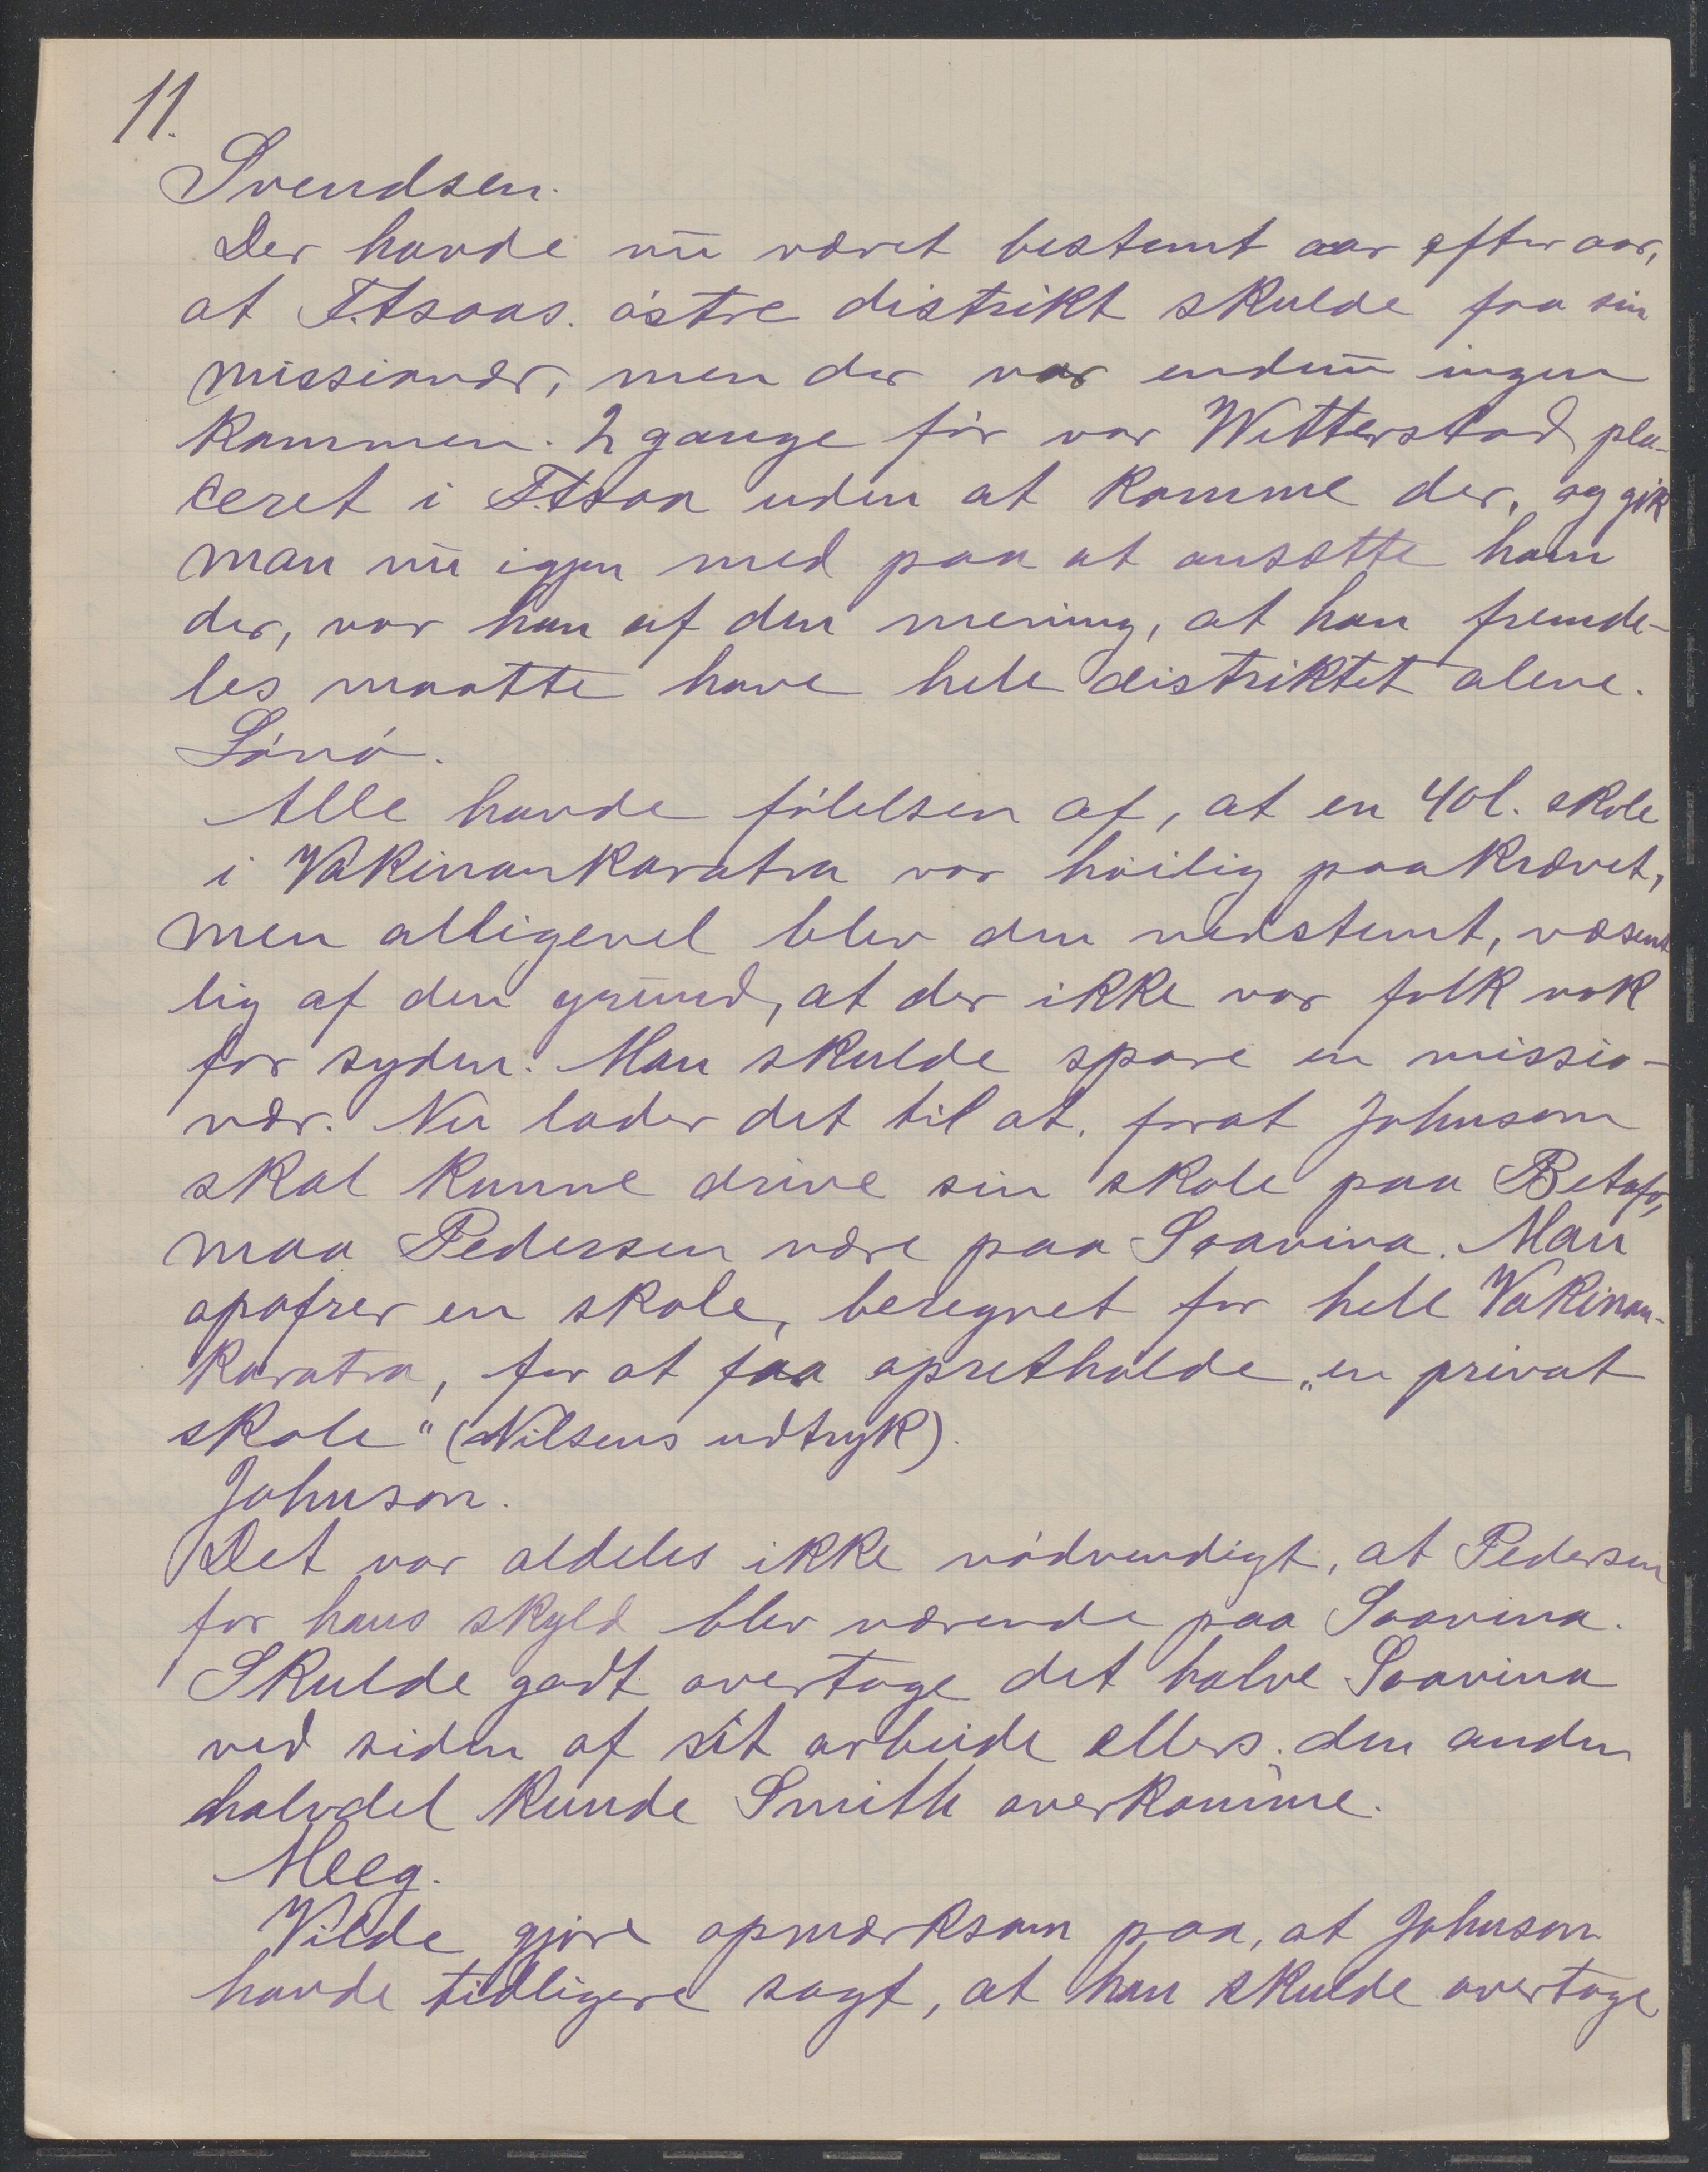 11.
Svendsen.
Der havde nu været bestemt aar efter aar,
at F.tsoas. østre distrikt skulde faa sin
missionær, men der var endnu ingen
kommen. 2 gange før var Wetterstad pla-
ceret i F.tsoa uden at komme der, og gik
man nu igjen med paa at ansætte ham
der, var han af den mening, at han fremde-
les maatte have hele distriktet alene.
Lønø.
Alle havde følelsen af, at en 40l. skole
i Vakinankaratra var høilig paakrævet,
men alligevel blev den nedstemt, væsent
lig af den grund, at der ikke var folk nok
for syden. Man skulde spare en missio-
nær. Nu lader det til at, forat Johnson
skal kunne drive sin skole paa Betafo,
maa Pedersen være paa Soavina. Man
opofrer en skole, beregnet for hele Vakinan-
karatra, for at faa opretholde „en privat
skole" (Nilsens udtryk).
Johnson.
Det var aldeles ikke nødvendigt, at Pedersen
for hans skyld blev værende paa Soavina.
Skulde godt overtage det halve Soavina
ved siden af sit arbeide ellers. den anden
halvdel kunde Smith overkomme.
Meeg.
Vilde gjøre opmærksom paa, at Johnson
havde tidligere sagt, at han skulde overtage